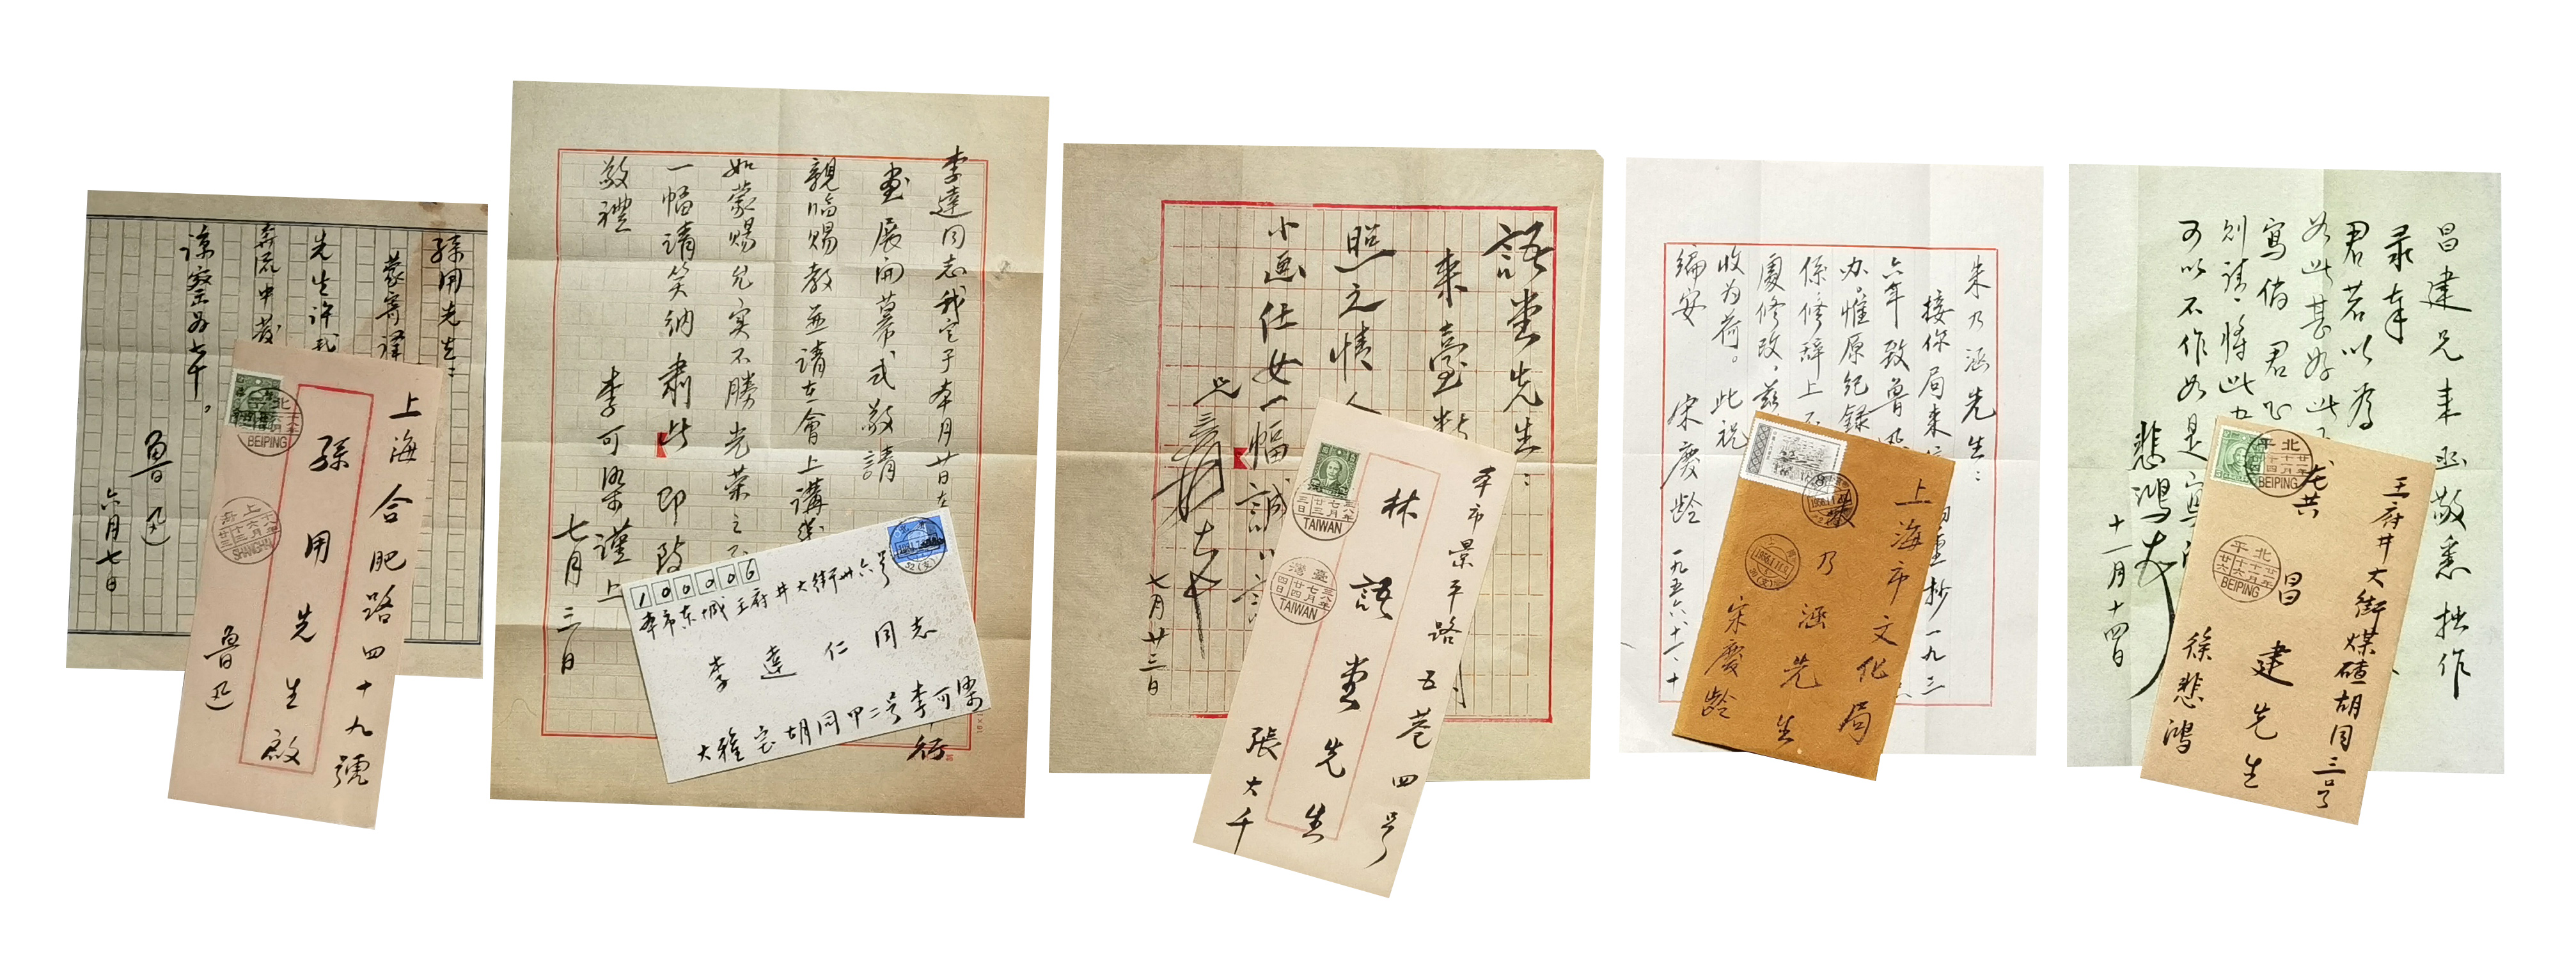 孫用先生：
蒙寄譯
先生許我
奔流中發
諒察为幸。
魯迅
六月七日
上海合肥路四十九號
孫用先生啟
魯迅
北
BEIPING
上海
SHANGHAI
李達同志我定于本月廿日在
画展開幕式敬請
親临赐教並請在會上講
如蒙赐允实不勝光荣之
一幅請笑纳肃此即致
敬禮
李可染谨上
七月三日
100006
本市东城王府井大街卅六号
李達仁同志
大雅宝胡同甲二号李可染
語堂先生：
来臺
照之情
小画仕女一幅誠
大千
七月廿三日
本市景平路五巷四号
林語堂先生
張大千
TAIWAN
臺灣
TAIWAN
朱乃涵先生：
接你局来
六年致魯迅
办。惟原纪録
係修辞上不
處修改。兹
收为荷。此祝
编安
宋慶龄 一九五六.十一.十
重抄一九三
上海市文化局
朱乃涵先生
宋慶龄
昌建兄来函敬悉拙作
承奉
君若以为
如此甚好此
寫俏君心
则请将此
可以不作如是寫
悲鴻
十一月十四日
王府井大街煤碴胡同三号
龙共昌建先生
徐悲鴻
北平
BEIPING
北平
BEIPING